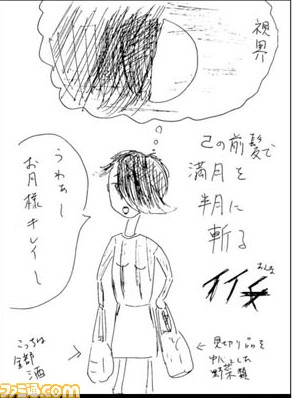 視界
己の前髪で
満月を
半月に
斬る
イイ女
おんな
うわぁー
お月様キレイー
こっちは
全部
酒
見切り品を
中心とした
野菜類
ファミ通.com